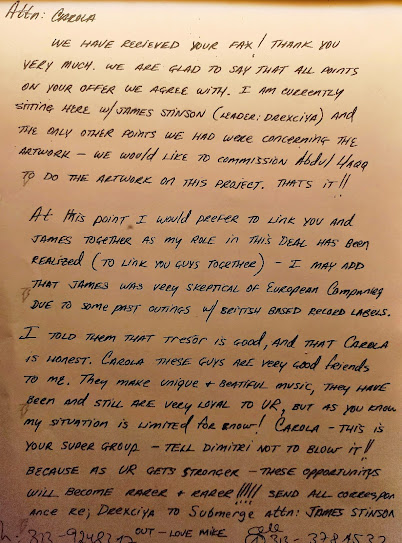 Attn: CAROLA
WE HAVE RECIEVED YOUR FAX! THANK YOU
VERY MUCH. WE ARE GLAD TO SAY THAT ALL POINTS
ON YOUR OFFER WE AGREE WITH. I AM CURRENTLY
SITTING HERE W/JAMES STINSON (LEADER: DREXCIYA) AND
THE ONLY OTHER POINTS WE HAD WERE CONCERNING THE
ARTWORK – WE WOULD LIKE TO COMMISSION Abdul HAQQ
TO DO THE ARTWORK ON THIS PROJECT. THATS IT!!
At this point I would prefer to link you and
JAMES TOGETHER AS MY ROLE IN THIS DEAL HAS BEEN
REALIZED (TO LINK YOU GUYS TOGETHER) – I MAY ADD
THAT JAMES WAS VERY SKEPTICAL OF EUROPEAN COMPANIES
DUE TO SOME PAST OUTINGS W/ BRITISH BASED RECORD LABELS.
I TOLD THEM THAT TRESOR IS GOOD, AND THAT CAROLA
IS HONEST. CAROLA THESE GUYS ARE VERY GOOD FRIENDS
TO ME. THEY MAKE UNIQUE + BEATIFUL MUSIC, THEY HAVE
BEEN AND STILL ARE VERY LOYAL TO UR, BUT AS YOU KNOW
MY SITUATION IS LIMITED FOR KNOW! CAROLA – THIS IS
YOUR SUPER GROUP – TELL DIMITRI NOT TO BLOW IT!!
BECAUSE AS UR GETS STRONGER – THESE OPPORTUNITYS
WILL BECOME RARER + RARER!!!!! SEND ALL CORRESPON
ANCE RE; DREXCIYA TO SUBMERGE ATTN: JAMES STINSON
OUT – LOVE MIKE